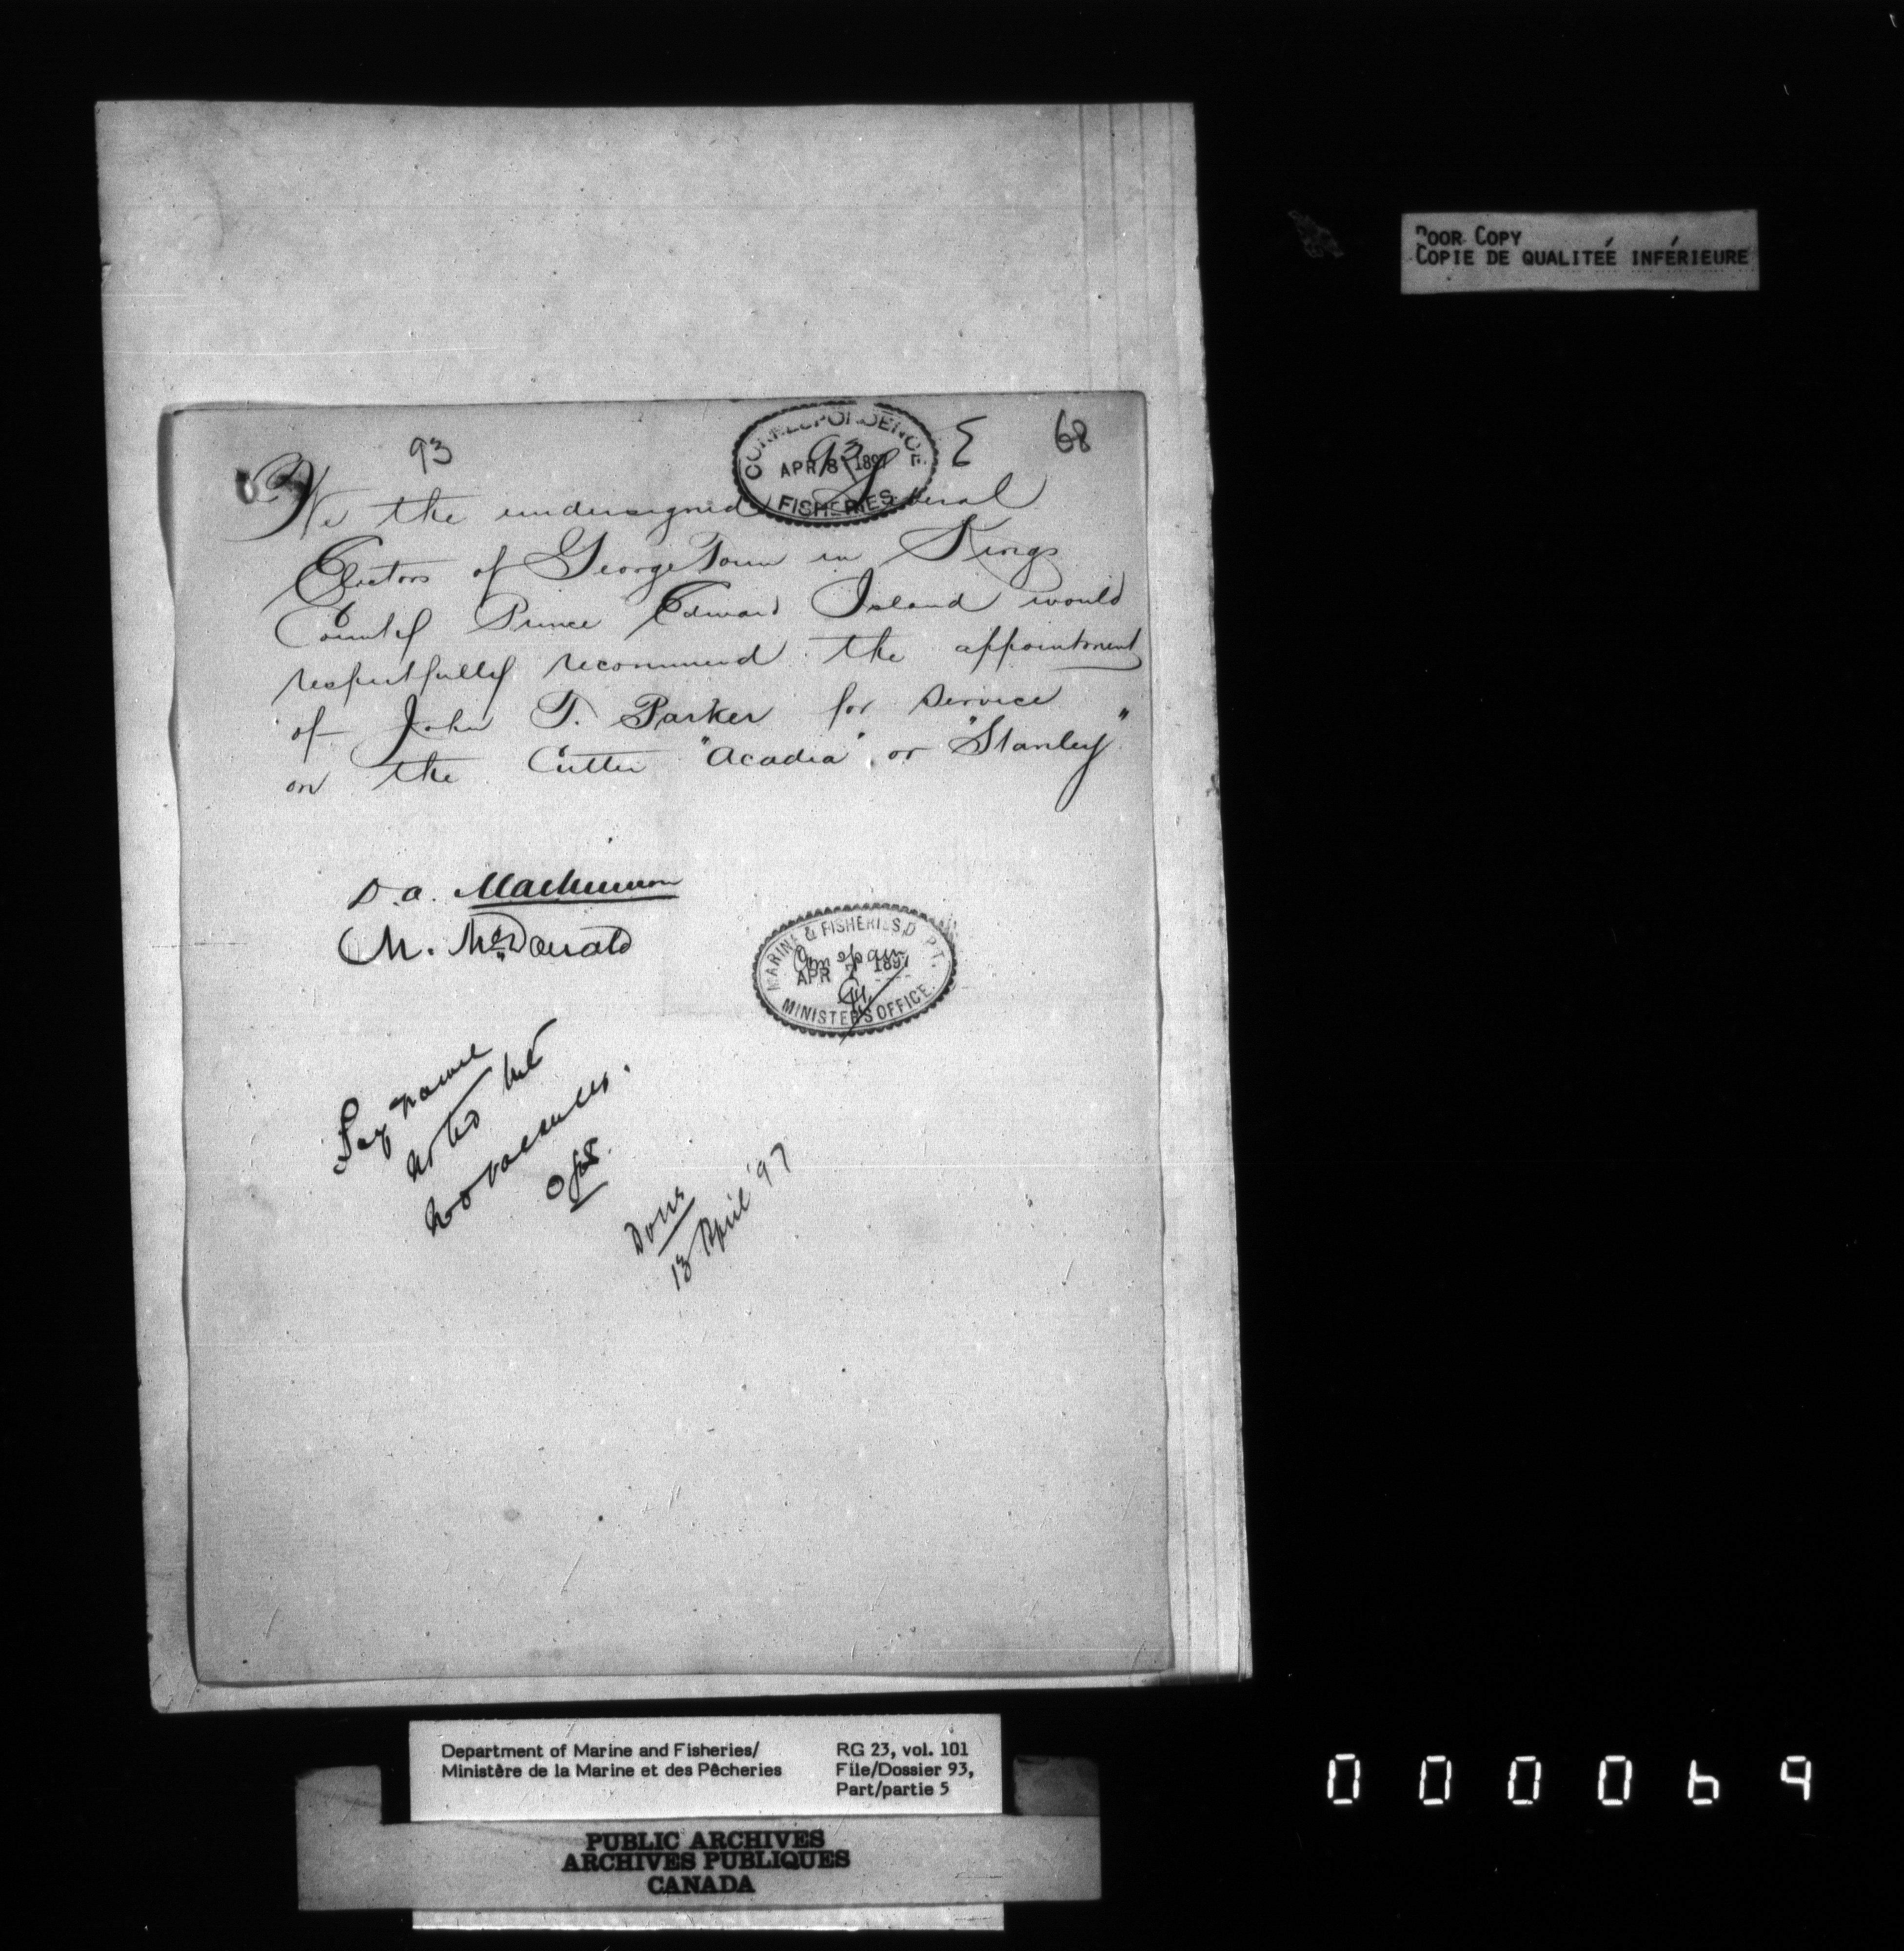 POOR COPY
COPIE DE QUALITEÉ INFÉRIEURE
93
68
CORRESPONDENCE
93
APR 8 1897
FISHERIES
We the undersigned Liberal
Electors of GeorgeTown in Kings
County Prince Edward Island would
respectfully recommend the appointment
of John T. Parker for service
on the Cutter "Acadia" or "Stanley"
D. A. MacKinnon
M. McDonald
MARINE & FISHERIES DEPT.
APR 7 1897
MINISTER'S OFFICE.
Say name
noted but
no vacancies.
Done
13 April '97
Department of Marine and Fisheries/
Ministère de la Marine et des Pêcheries
RG 23, vol. 101
File/Dossier 93,
Part/partie 5
PUBLIC ARCHIVES
ARCHIVES PUBLIQUES
CANADA
000069